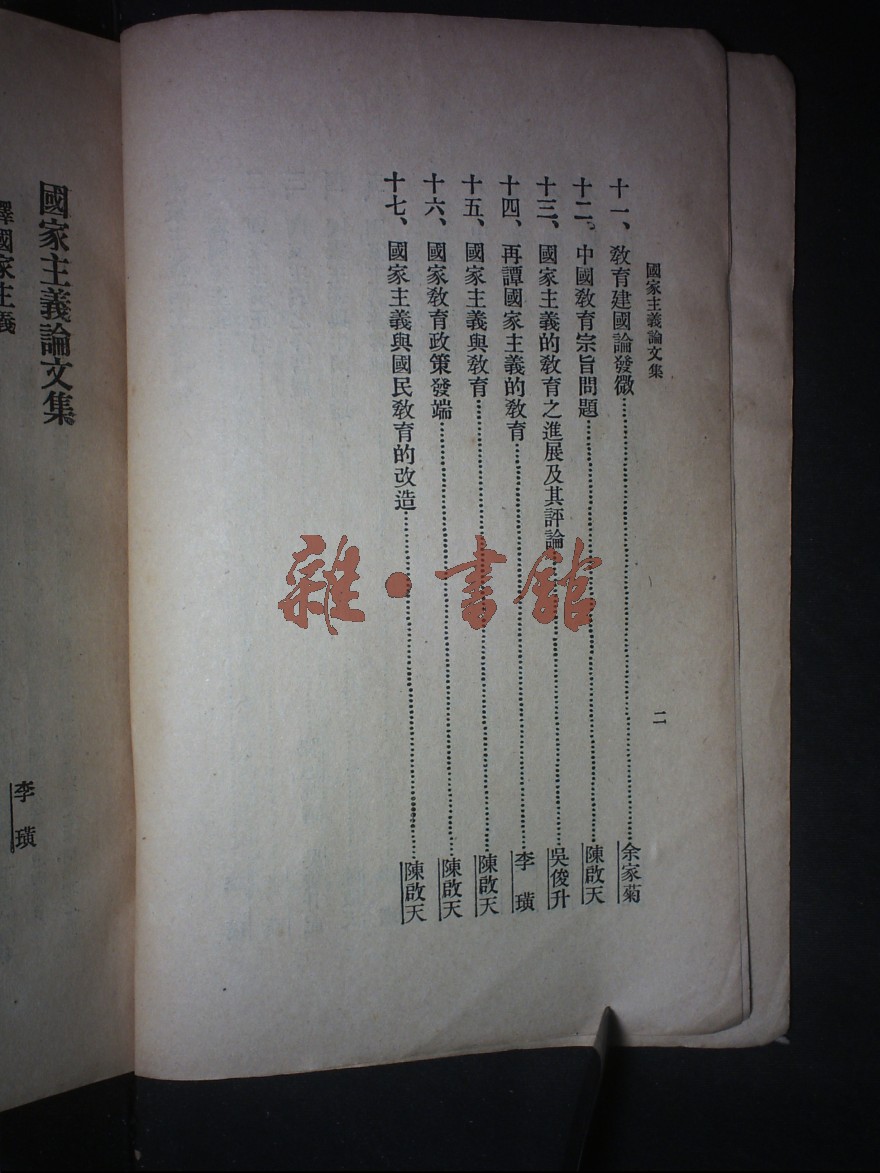 國家主義論文集
二
十一、教育建國論發微……余家菊
十二。中國教育宗旨問題……陳啟天
十三、國家主義的教育之進展及其評論……吳俊升
十四、再譚國家主義的教育……李璜
十五、國家主義與教育……陳啟天
十六、國家教育政策發端……陳啟天
十七、國家主義與國民教育的改造……陳啟天
雜·書館
國家主義論文集
釋國家主義
李璜